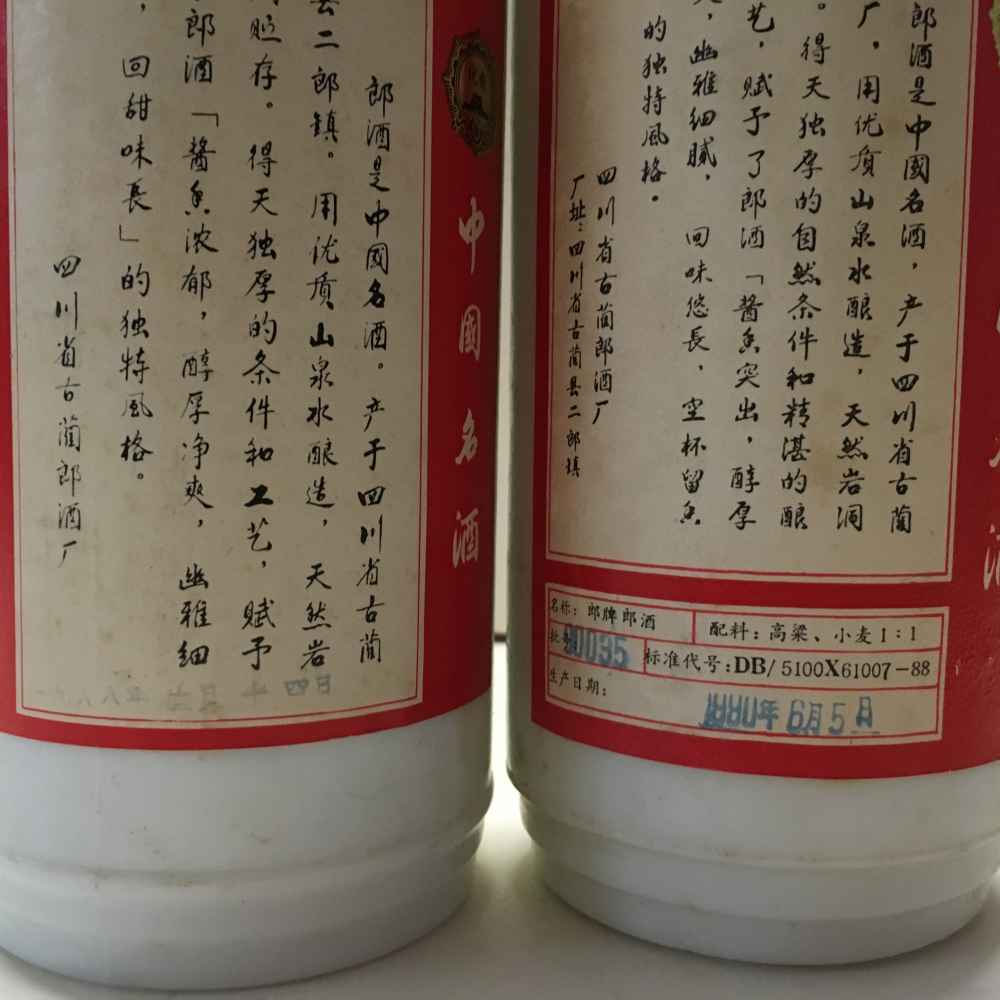 中國名酒
郎酒是中國名酒。产于四川省古蔺
县二郎镇。用优质山泉水酿造，天然岩
贮存。得天独厚的条件和工艺，赋予
郎酒「醬香浓郁，醇厚净爽，幽雅细
，回甜味長」的独特风格。
四川省古蔺郎酒厂
郎酒是中國名酒，产于四川省古蔺
厂。用优质山泉水酿造，天然岩洞
。得天独厚的自然条件和精湛的酿
艺，赋予了郎酒「醬香突出，醇厚
，幽雅细腻，回味悠長，空杯留香
的独特风格。
四川省古蔺郎酒厂
厂址：四川省古蔺县二郎镇
名称：郎牌郎酒
配料：高粱、小麦1：1
批 90035
标准代号：DB/5100X61007-88
生产日期：
1990年6月5日